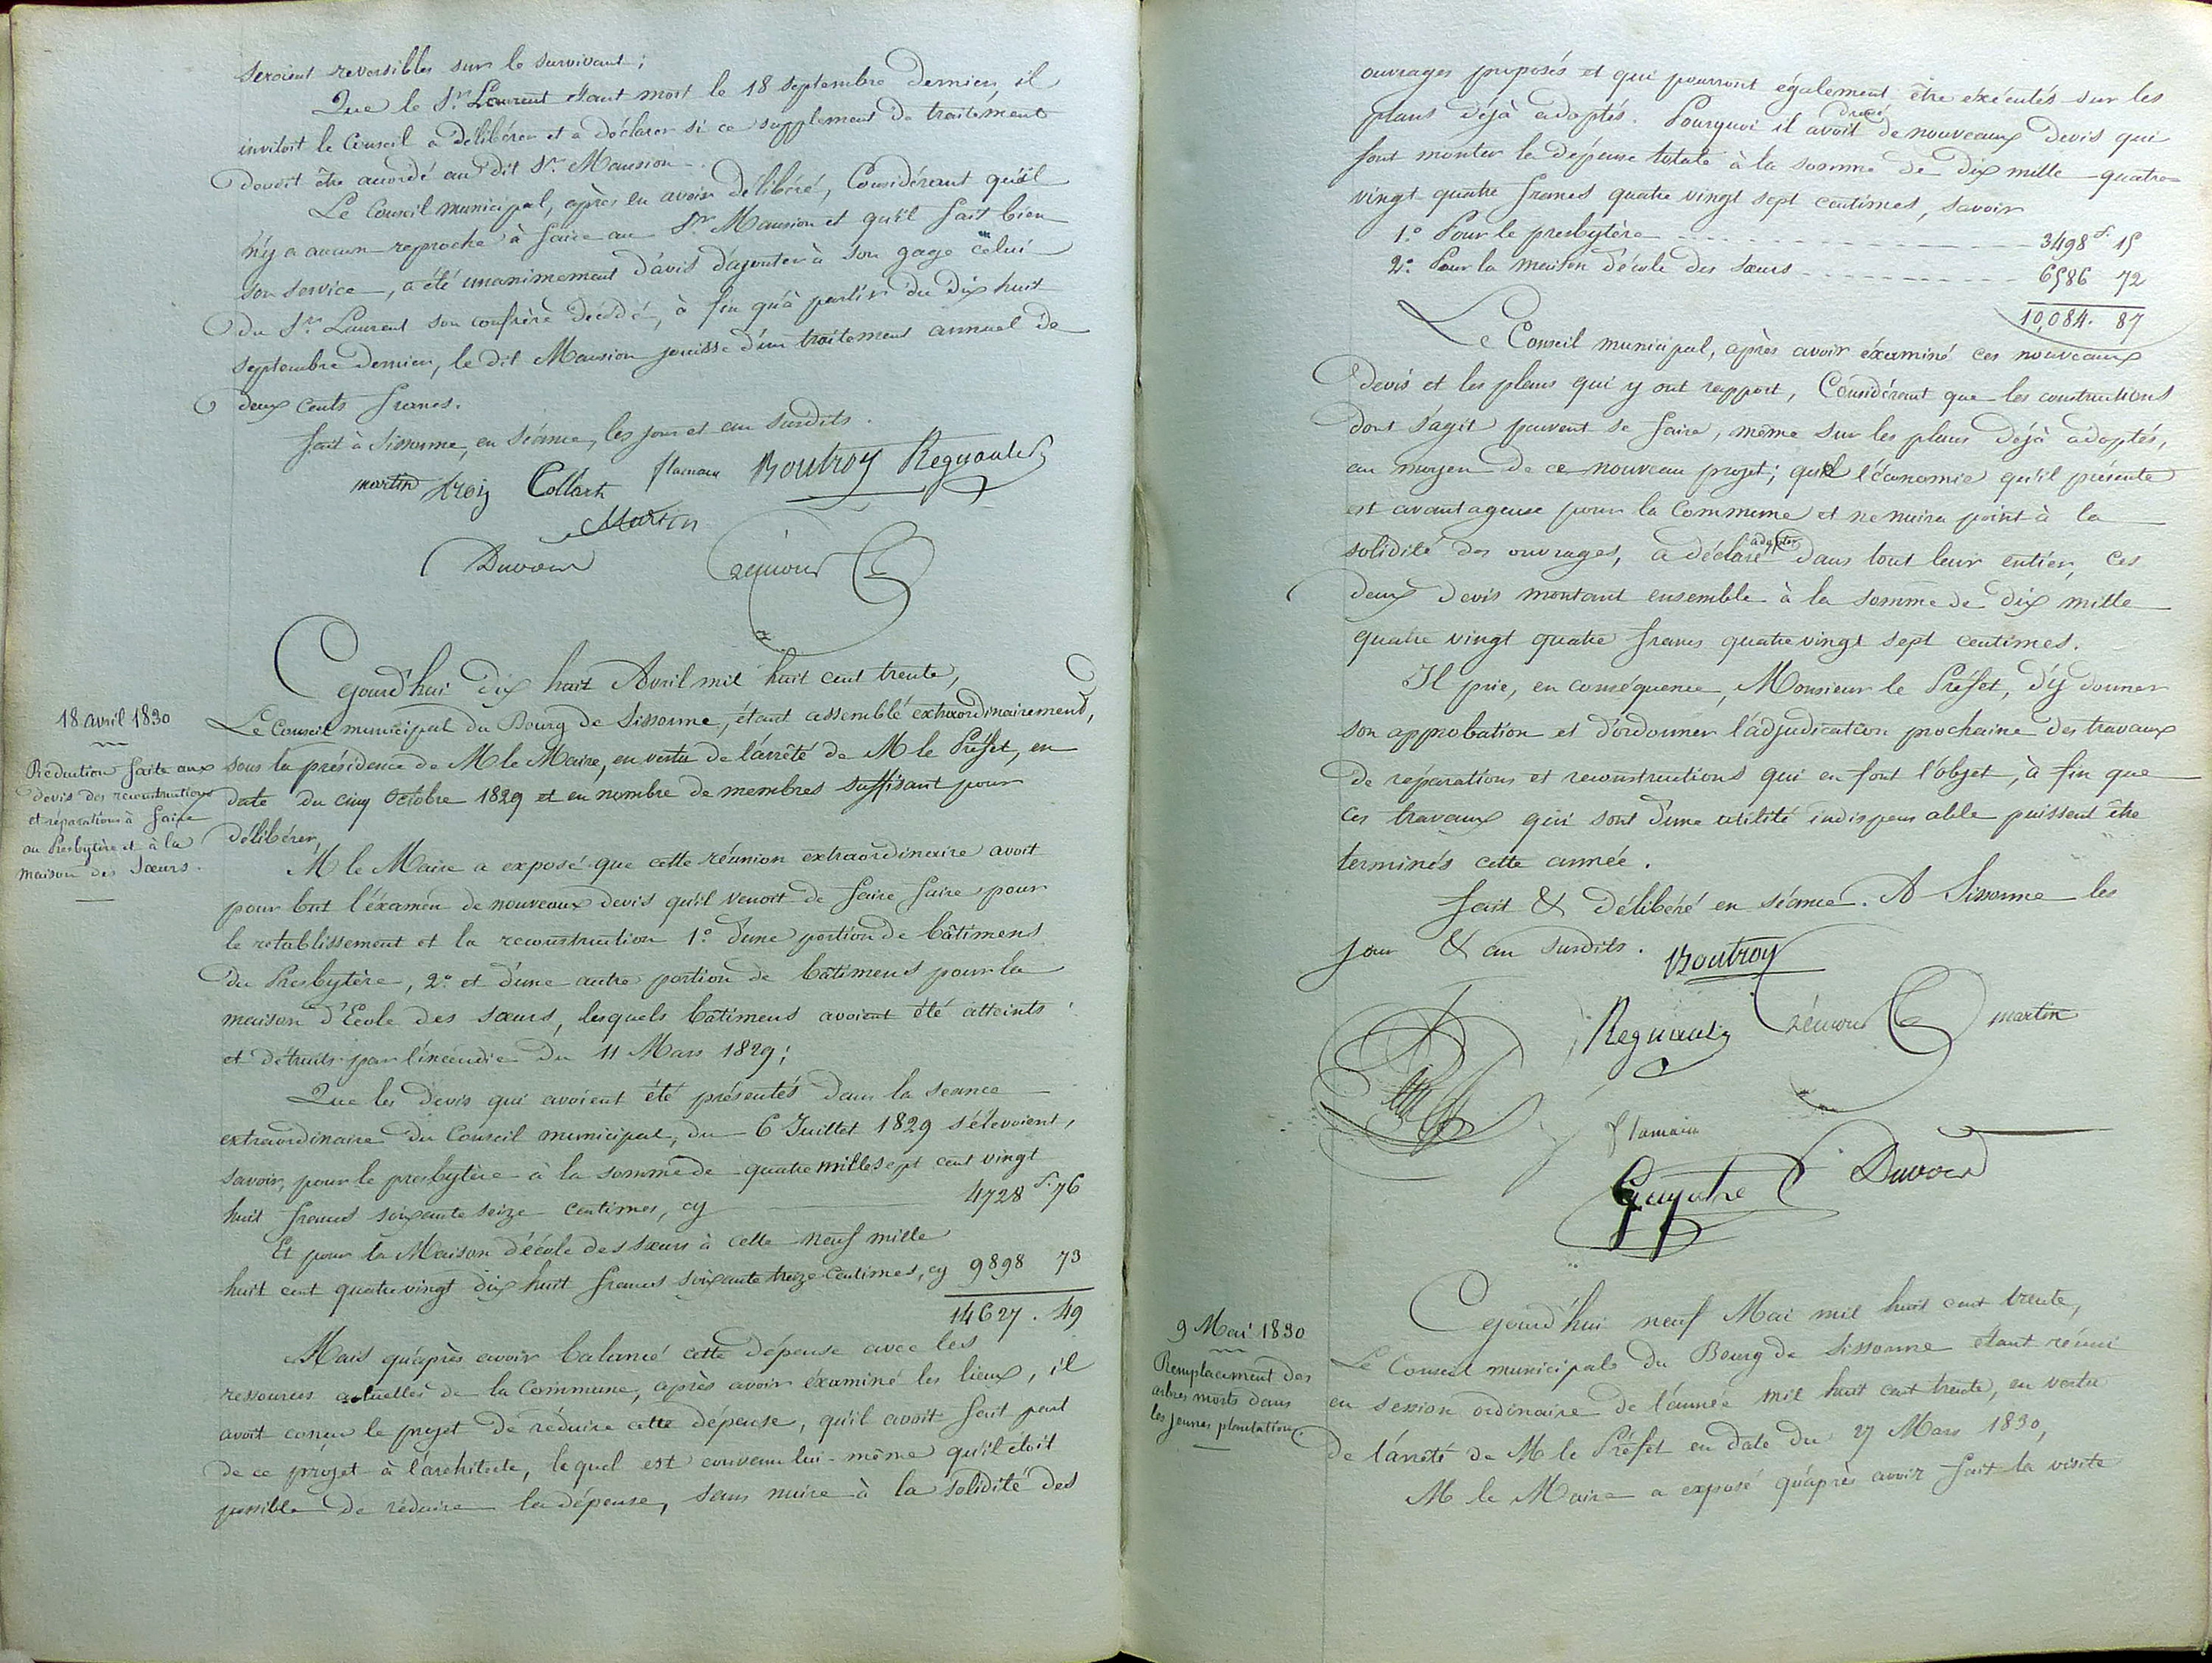 seroient reversibles sur le survivant ;
Que le Sr. Laurent étant mort le 18 septembre dernier, il
invitoit le Conseil a délibérer et a déclarer si ce supplément de traitement
devoit être accordé au dit Sr. Mansion.
Le Conseil municipal, après en avoir délibéré, Considérant qu'il
n'y a aucun reproche à faire au Sr. Mansion et qu'il fait bien
son service, a été unanimement d'avis d'ajouter à son gage celui
du Sr. Laurent son confrère décédé, à fin qu'à partir du dix huit
septembre dernier, le dit Mansion jouisse d'un traitement annuel de
deux cents francs.
fait à Sissonne, en séance, les jour et an susdits.
martin Collart flamain Boutroy Regnault
Martin
Duvour
Cejourd'hui dix huit Avril mil huit cent trente,
18 avril 1830
Reduction faite aux
devis des reconstructions
et réparations à faire
au Presbytère et à la
maison des Sœurs.
Le Conseil municipal du Bourg de Sissonne, étant assemblé extraordinairement,
sous la présidence de M le Maire, en vertu de l'arrêté de M le Préfet, en
date du cinq octobre 1829 et en nombre de membres suffisant pour
délibérer,
M le Maire a exposé que cette réunion extraordinaire avoit
pour but l'éxamen de nouveaux devis qu'il venoit de faire faire pour
le rétablissement et la reconstruction 1.° d'une portion de bâtimens
du Presbytère, 2.° et d'une autre portion de bâtimens pour la
maison d'Ecole des sœurs, lesquels bâtimens avoient été atteints
et détruits par l'incendie du 11 Mars 1829 ;
Que les devis qui avoient été présentés dans la seance
extraordinaire du Conseil municipal, du 6 Juillet 1829 s'élevoient,
savoir, pour le presbytère à la somme de quatre mille sept cent vingt
huit francs soixante seize centimes, cy 4728 f. 76
Et pour la Maison d'école des sœurs à celle neuf mille
huit cent quatre vingt dix huit francs soixante treize centimes, cy 9898 73
14627 . 49
Mais qu'après avoir balancé cette dépense avec les
ressources actuelles de la Commune, après avoir éxaminé les lieux, il
avoit conçu le projet de réduire cette dépense, qu'il avoit fait part
de ce projet à l'architecte, lequel est convenu lui-même qu'il étoit
possible de réduire la dépense, sans nuire à la solidité des
ouvrages proposés et qui pourront également être éxécutés sur les
plans déjà adoptés. Pourquoi il avoit dressé de nouveaux devis qui
font monter la dépense totale à la somme de dix mille quatre
vingt quatre francs quatre vingt sept centimes, savoir
1.° Pour le presbytère 3498 f. 15
2.° Pour la maison d'école des sœurs 6586 72
10,084. 87
Le Conseil municipal, après avoir éxaminé ces nouveaux
devis et les plans qui y ont rapport, Considérant que les constructions
dont s'agit peuvent se faire, même sur les plans déjà adoptés,
au moyen de ce nouveau projet ; que l'économie qu'il présente
est avantageuse pour la Commune et ne nuira point à la
solidité des ouvrages, a déclaré adopter dans tout leur entier, ces
deux devis montant ensemble à la somme de dix mille
quatre vingt quatre francs quatre vingt sept centimes.
Il prie, en conséquence, Monsieur le Préfet, d'y donner
son approbation et d'ordonner l'adjudication prochaine des travaux
de réparations et reconstructions qui en font l'objet, à fin que
ces travaux qui sont d'une utilité indispensable puissent être
terminés cette année.
fait & délibéré en séance. A Sissonne les
jour & an susdits. Boutroy
Regnault martin
flamain
Duvour
9 Mai 1830
Remplacement des
arbres morts dans
les jeunes plantations.
Cejourd'hui neuf Mai mil huit cent trente,
Le Conseil municipal du Bourg de Sissonne étant réuni
en session ordinaire de l'année mil huit cent trente, en vertu
de l'arrêté de M le Préfet en date du 27 Mars 1830,
M le Maire a exposé qu'après avoir fait la visite